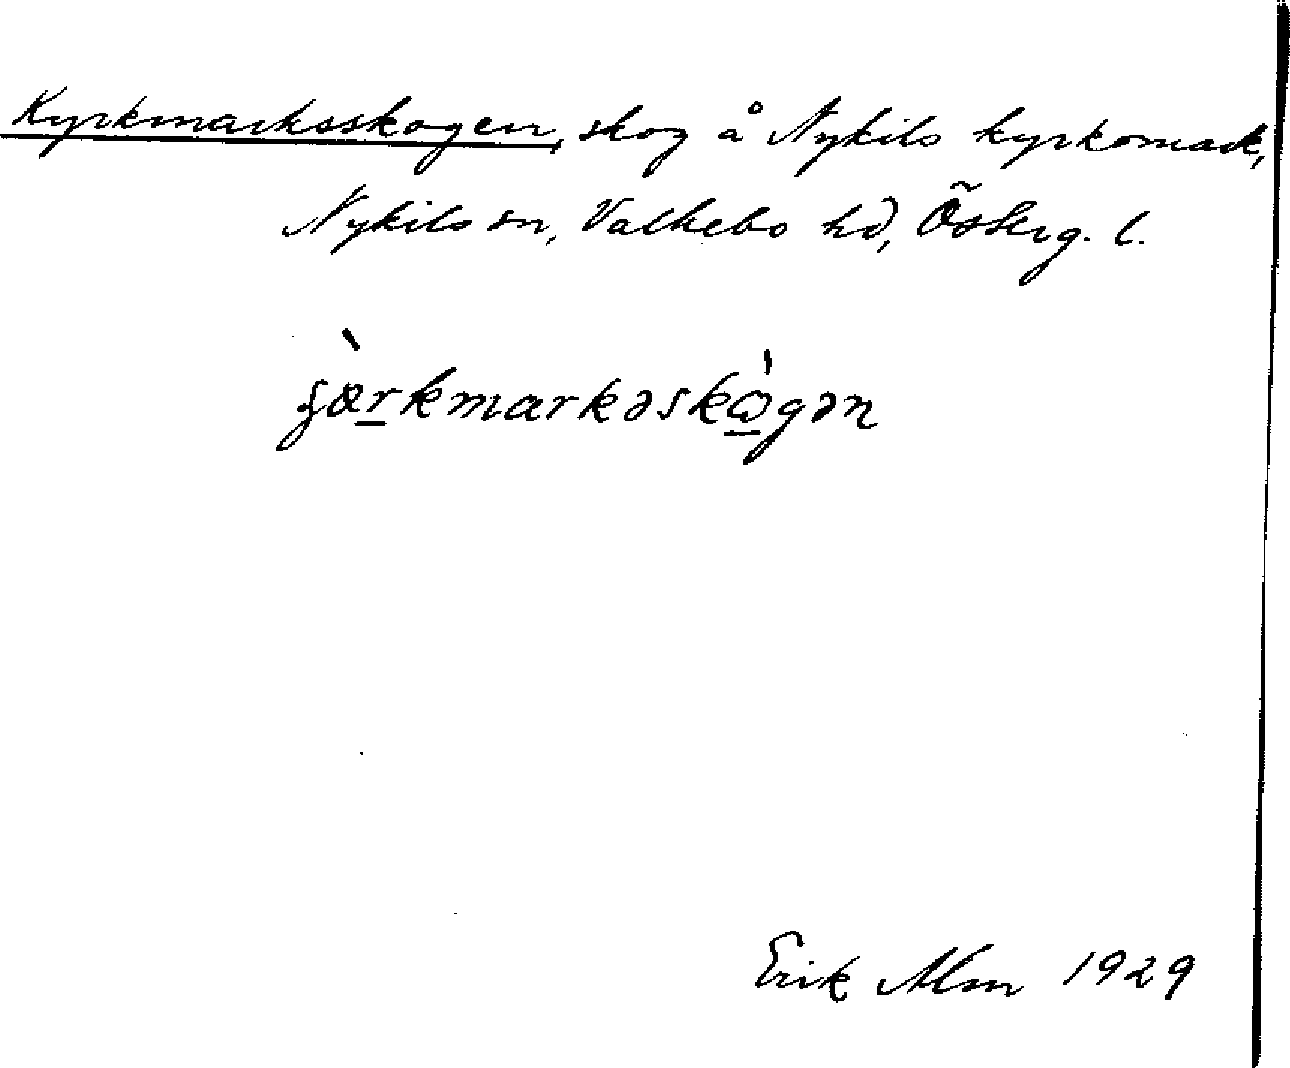 Kyrkmarksskogen, skog å Nykils kyrkomark,
Nykils sn, Valkebo hd, Österg. l.
Erik Alm 1929